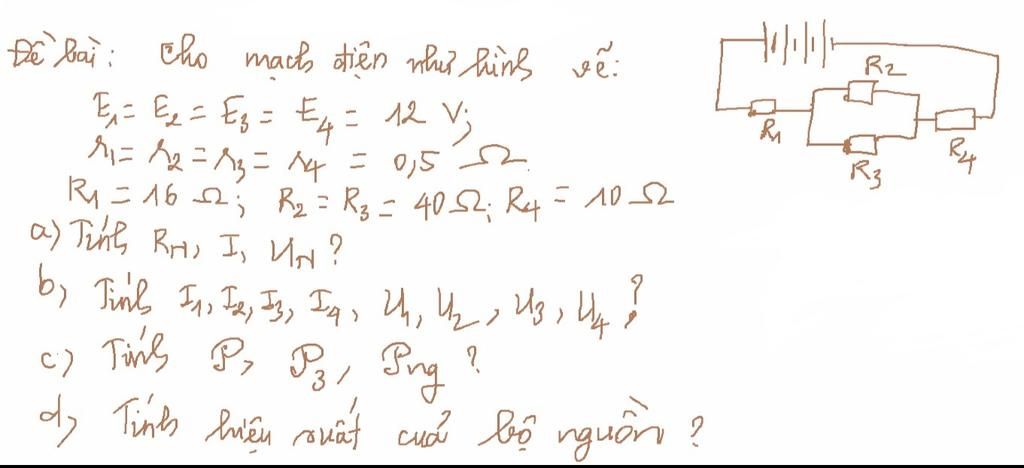 Đề bài: Cho mạch điện như hình vẽ:
E1 = E2 = E3 = E4 = 12 V;
r1 = r2 = r3 = r4 = 0,5 Ω
R1 = 16 Ω; R2 = R3 = 40 Ω; R4 = 10 Ω
a) Tính RN, I, UN?
b) Tính I1, I2, I3, I4, U1, U2, U3, U4?
c) Tính P, P3, Png?
d) Tính hiệu suất của bộ nguồn?
R2
R1
R3
R4